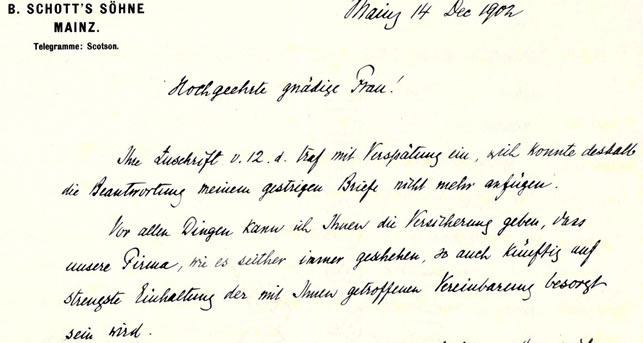 B. SCHOTT'S SÖHNE
MAINZ.
Telegramme: Scotson.
Mainz 14 Dec 1902
Hochgeehrte gnädige Frau!
Ihre Zuschrift v. 12. d. traf mit Verspätung ein, ich konnte deshalb
die Beantwortung meinem gestrigen Briefe nicht mehr anfügen.
Vor allen Dingen kann ich Ihnen die Versicherung geben, dass
unsere Firma, wie es seither immer geschehen, so auch künftig auf
strengste Einhaltung der mit Ihnen getroffenen Vereinbarung besorgt
sein wird.